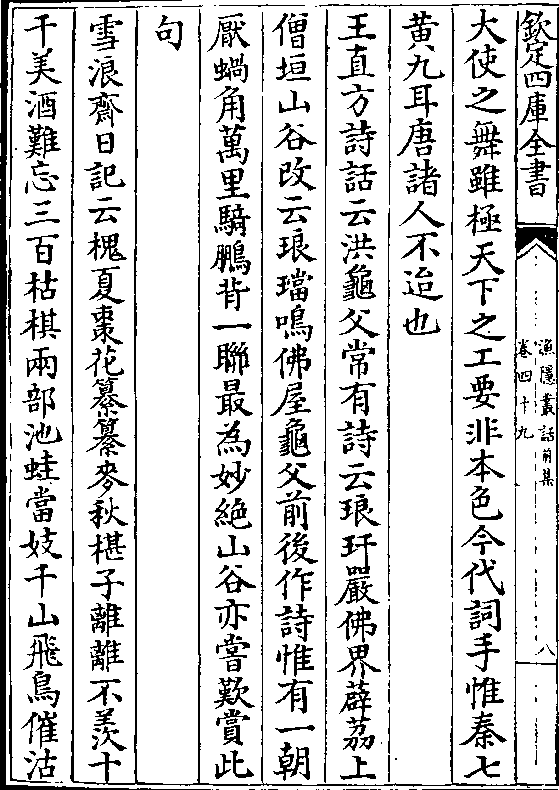 欽定四庫全書
漁隱叢話前集
卷四十九
八
大使之舞雖極天下之工要非本色今代詞手惟秦七
黄九耳唐諸人不迨也
王直方詩話云洪龜父常有詩云琅玕嚴佛界薜荔上
僧垣山谷改云琅璫鳴佛屋龜父前後作詩惟有一朝
厭蝸角萬里騎鵬背一聯最為妙絶山谷亦嘗歎賞此
句
雪浪齋日記云槐夏棗花纂纂麥秋椹子離離不羨十
千美酒難忘三百枯棋兩部池蛙當妓千山飛鳥催沽